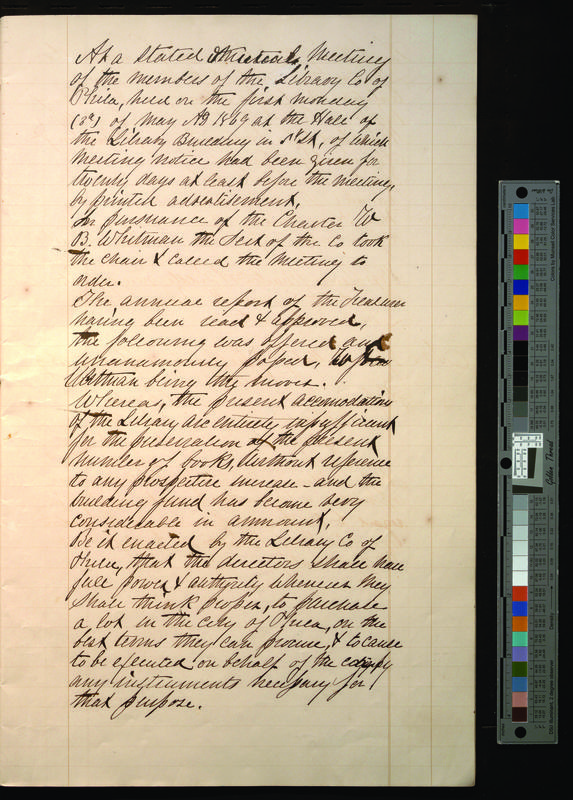 At a stated Meeting
of the members of the Library Co of
Phila, held on the first Monday
(3d) of May AD 1869 at the Hall of
the Library Building in 5th St, of which
Meeting notice had been given for
twenty days at least before the meeting
by printed advertisement,
In pursuance of the Charter W
B. Whitman the Sect of the Co took
the chair & called the Meeting to
order.
The annual report of the Treasurer
having been read & approved,
the following was offered and
unanamously passed,
being the mover.
Whereas, the present accomodations
of the Library are entirely insufficient
for the preservation of the present
number of books, without reference
to any prospective increase - and the
building fund has become very
considerable in ammount,
Be it enacted by the Library Co of
Phila, that the directors shall have
full power & authority whenever they
shall think proper, to purchase
a lot in the city of Phila, on the
best terms they can procure, & to cause
to be executed on behalf of the company
any instruments necessary for
that purpose.